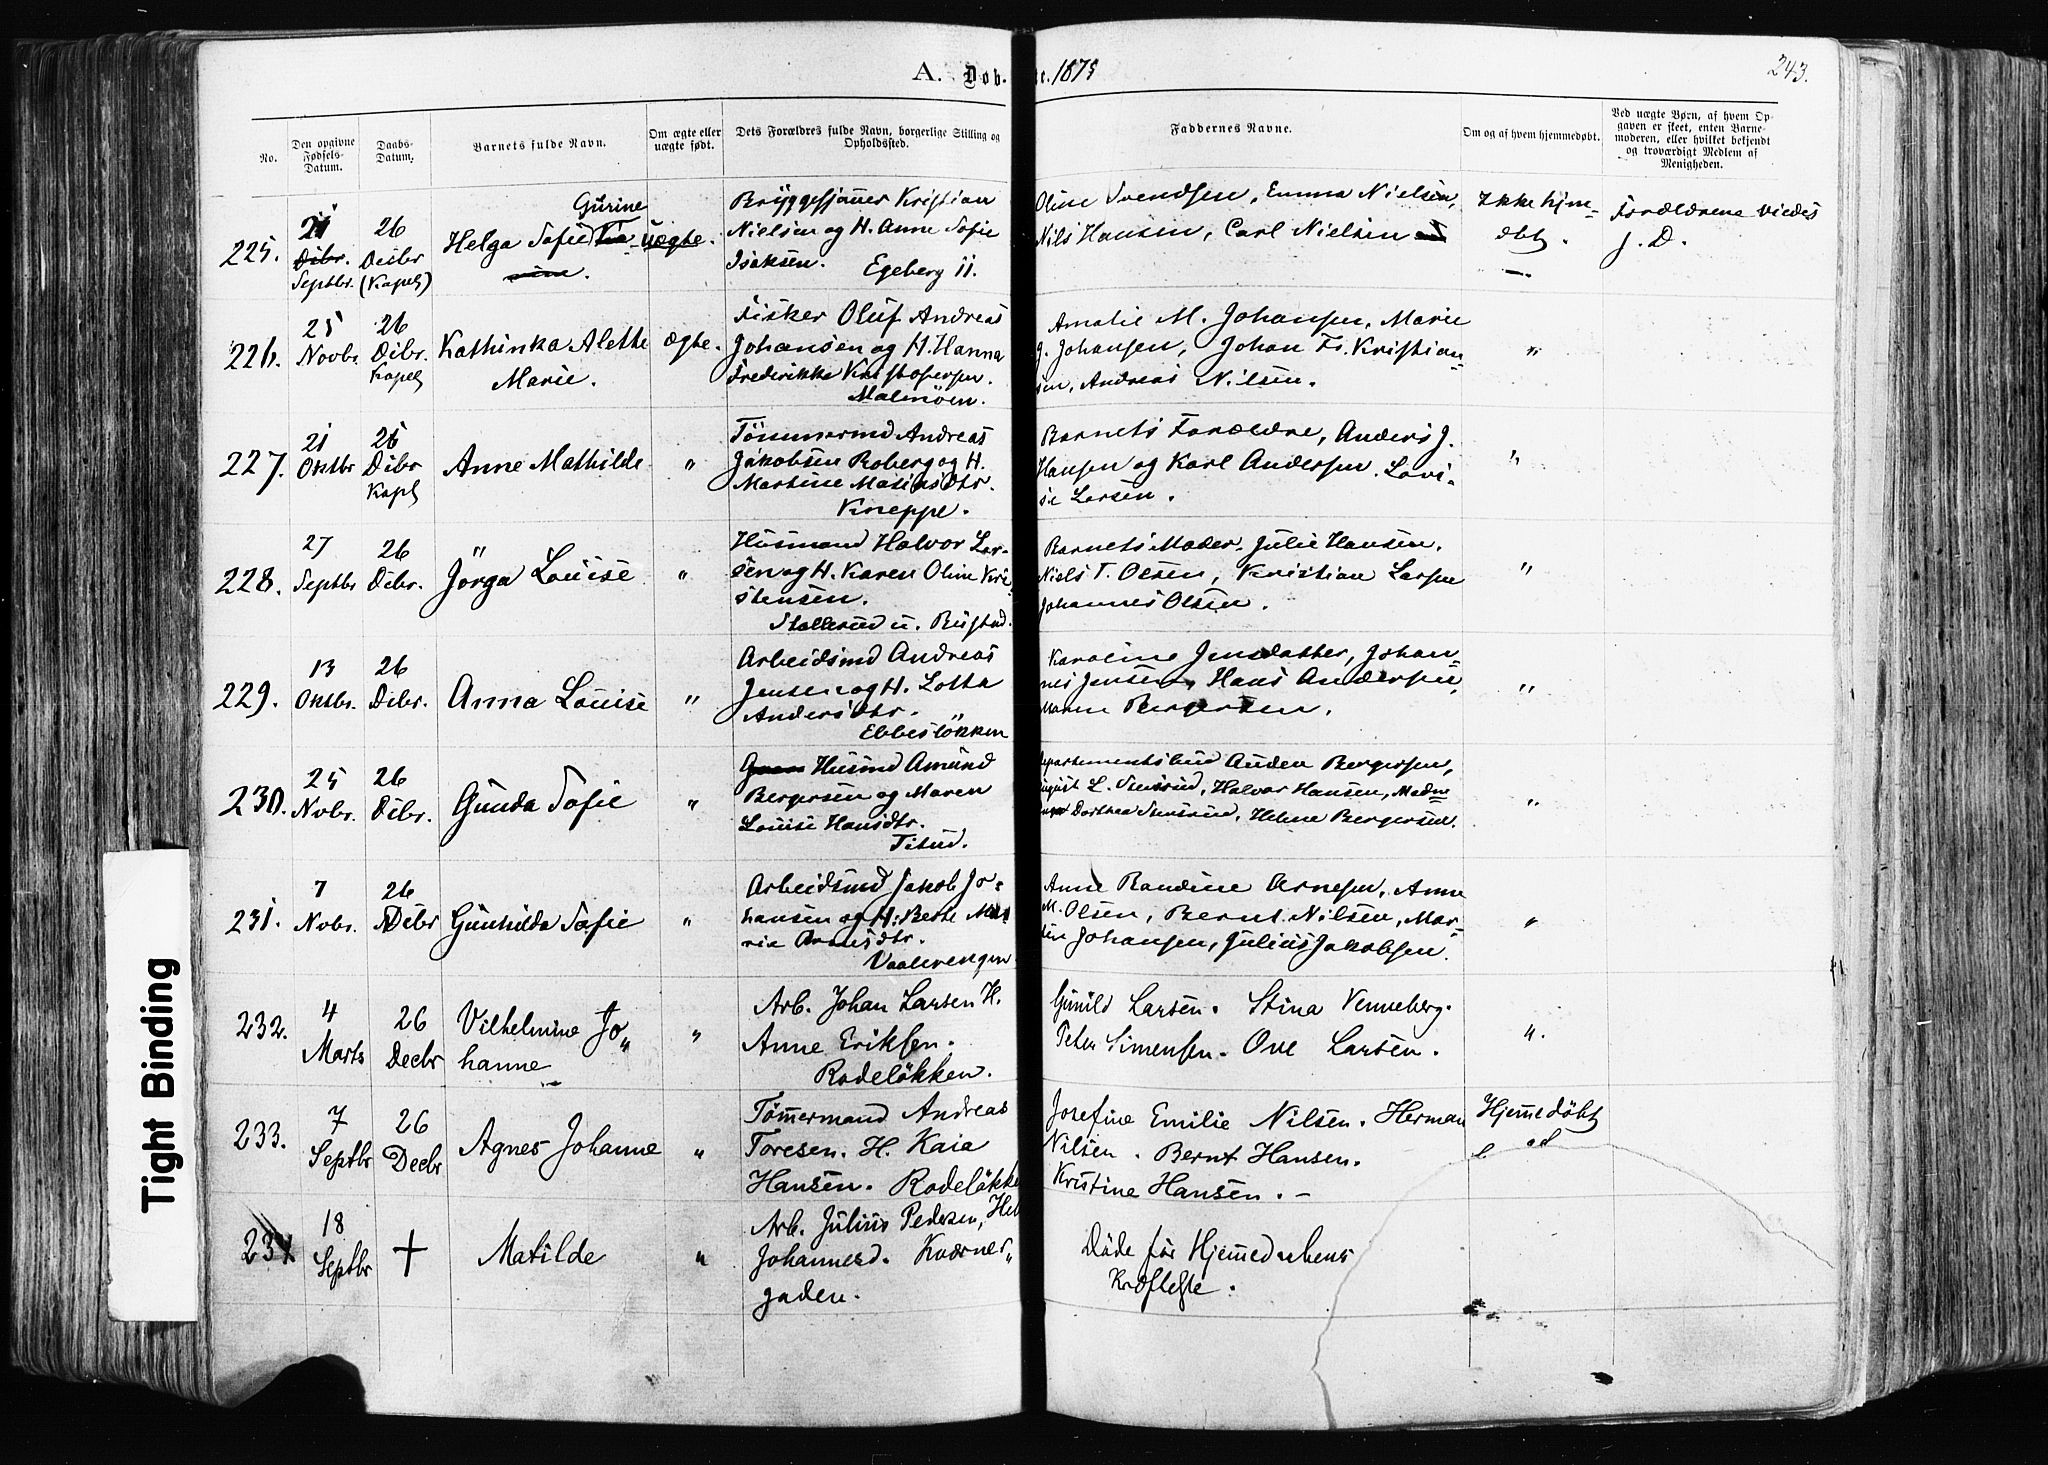 A. Døb. e. 1875
243.
No.
Den opgivne Fødsels-Datum.
Daabs-Datum.
Barnets fulde Navn.
Om ægte eller uægte født.
Dets Forældres fulde Navn, borgerlige Stilling og Opholdssted.
Faddernes Navne.
Om og af hvem hjemmedøbt.
Ved uægte Børn, af hvem Opgaven er skeet, enten Barnemoderen, eller hvilket bekjendt og troværdigt Medlem af Menigheden.
225.
Septbr.
26
Deibr
(Kapel)
Gurine
Helga Sofie
Uægte.
Bryggesjauer Kristian
Nielsen og H. Anne Sofie
Isaksen. Egeberg 11.
Oline Svendsen, Emma Nielsen,
Nils Hansen, Carl Nielsen
Ikke hjem=
døbt.
Forældrene viedes
J. D.
226.
25
Novbr.
26
Dibr.
Kapel
Kathinka Alette
Marie.
Ægte.
Fisker Oluf Andreas
Johansen og H. Hanna
Frederikke Kristofersen.
Malmöen.
Amalie M. Johansen, Marie
J. Johansen, Johan Fr. Kristian=
sen, Andreas Nilsen.
"
227.
21
Oktbr
26
Dibr
Kapl
Anne Mathilde
"
Tömmermd Andreas
Jakobsen Roberg og H.
Martine Matisdtr.
Kneppe.
Barnets Forældre, Anders J.
Hansen og Karl Andersen. Lovi=
se Larsen.
"
228.
27
Septbr
26
Dibr.
Jörga Louise
"
Husmand Halvor Lar-
sen og H. Karen Oline Kri
stensen.
Stallerud u. Bustad.
Barnets Moder. Julie Hansen.
Niels T. Olsen, Kristian Larsen
Johannes Olsen.
"
229.
13
Oktbr.
26
Dibr.
Anna Louise
"
Arbeidsmd Andreas
Jensen og H. Lotta
Andersdtr.
Ebbeslökken
Karoline Jensdatter, Johan=
nes Jensen, Hans Andersen,
Maren Bergersen.
"
230.
25
Nvbr.
26
Dibr.
Gunda Sofie
"
Husmd Amund
Bergersen og Maren
Louise Hansdtr.
Tisud.
Departementsbud Auden Bergersen,
August L. Simsrud, Halvor Hansen,
Dorthea Simsrud, Helene Bergersen.
"
231.
7
Nvbr.
26
Dibr
Gunhilda Sofie
"
Arbeidsmd Jakob Jo-
hansen og H. Berte Ma
rie Arnesdtr.
Vaalerengen
Anne Randine Arnesen, Anne
M. Olsen, Bernt Nilsen, Mar=
tin Johansen, Julius Jakobsen.
"
232.
4
Marts
26
Decbr
Vilhelmine Jo„
hanne
"
Arb. Johan Larsen H.
Anne Eriksen.
Rodelökken.
Gunild Larsen. Stina Venneberg.
Peter Simensen. Ove Larsen.
".
233.
7
Septbr
26
Decbr
Agnes Johanne
"
Tömmermand Andreas
Toresen. H. Kaia
Hansen. Rodelökke
Josefine Emilie Nilsen. Herman
Nilsen. Bernt Hansen.
Kristine Hansen. –
Hjemmedöbt
234
18
Septbr
†
Matilde
"
Arb. Julius Pedersen, Hel
Johannesd. Kværner„
gaden.
Döde för Hjemmedaabens
Kræftelse.
Tight Binding